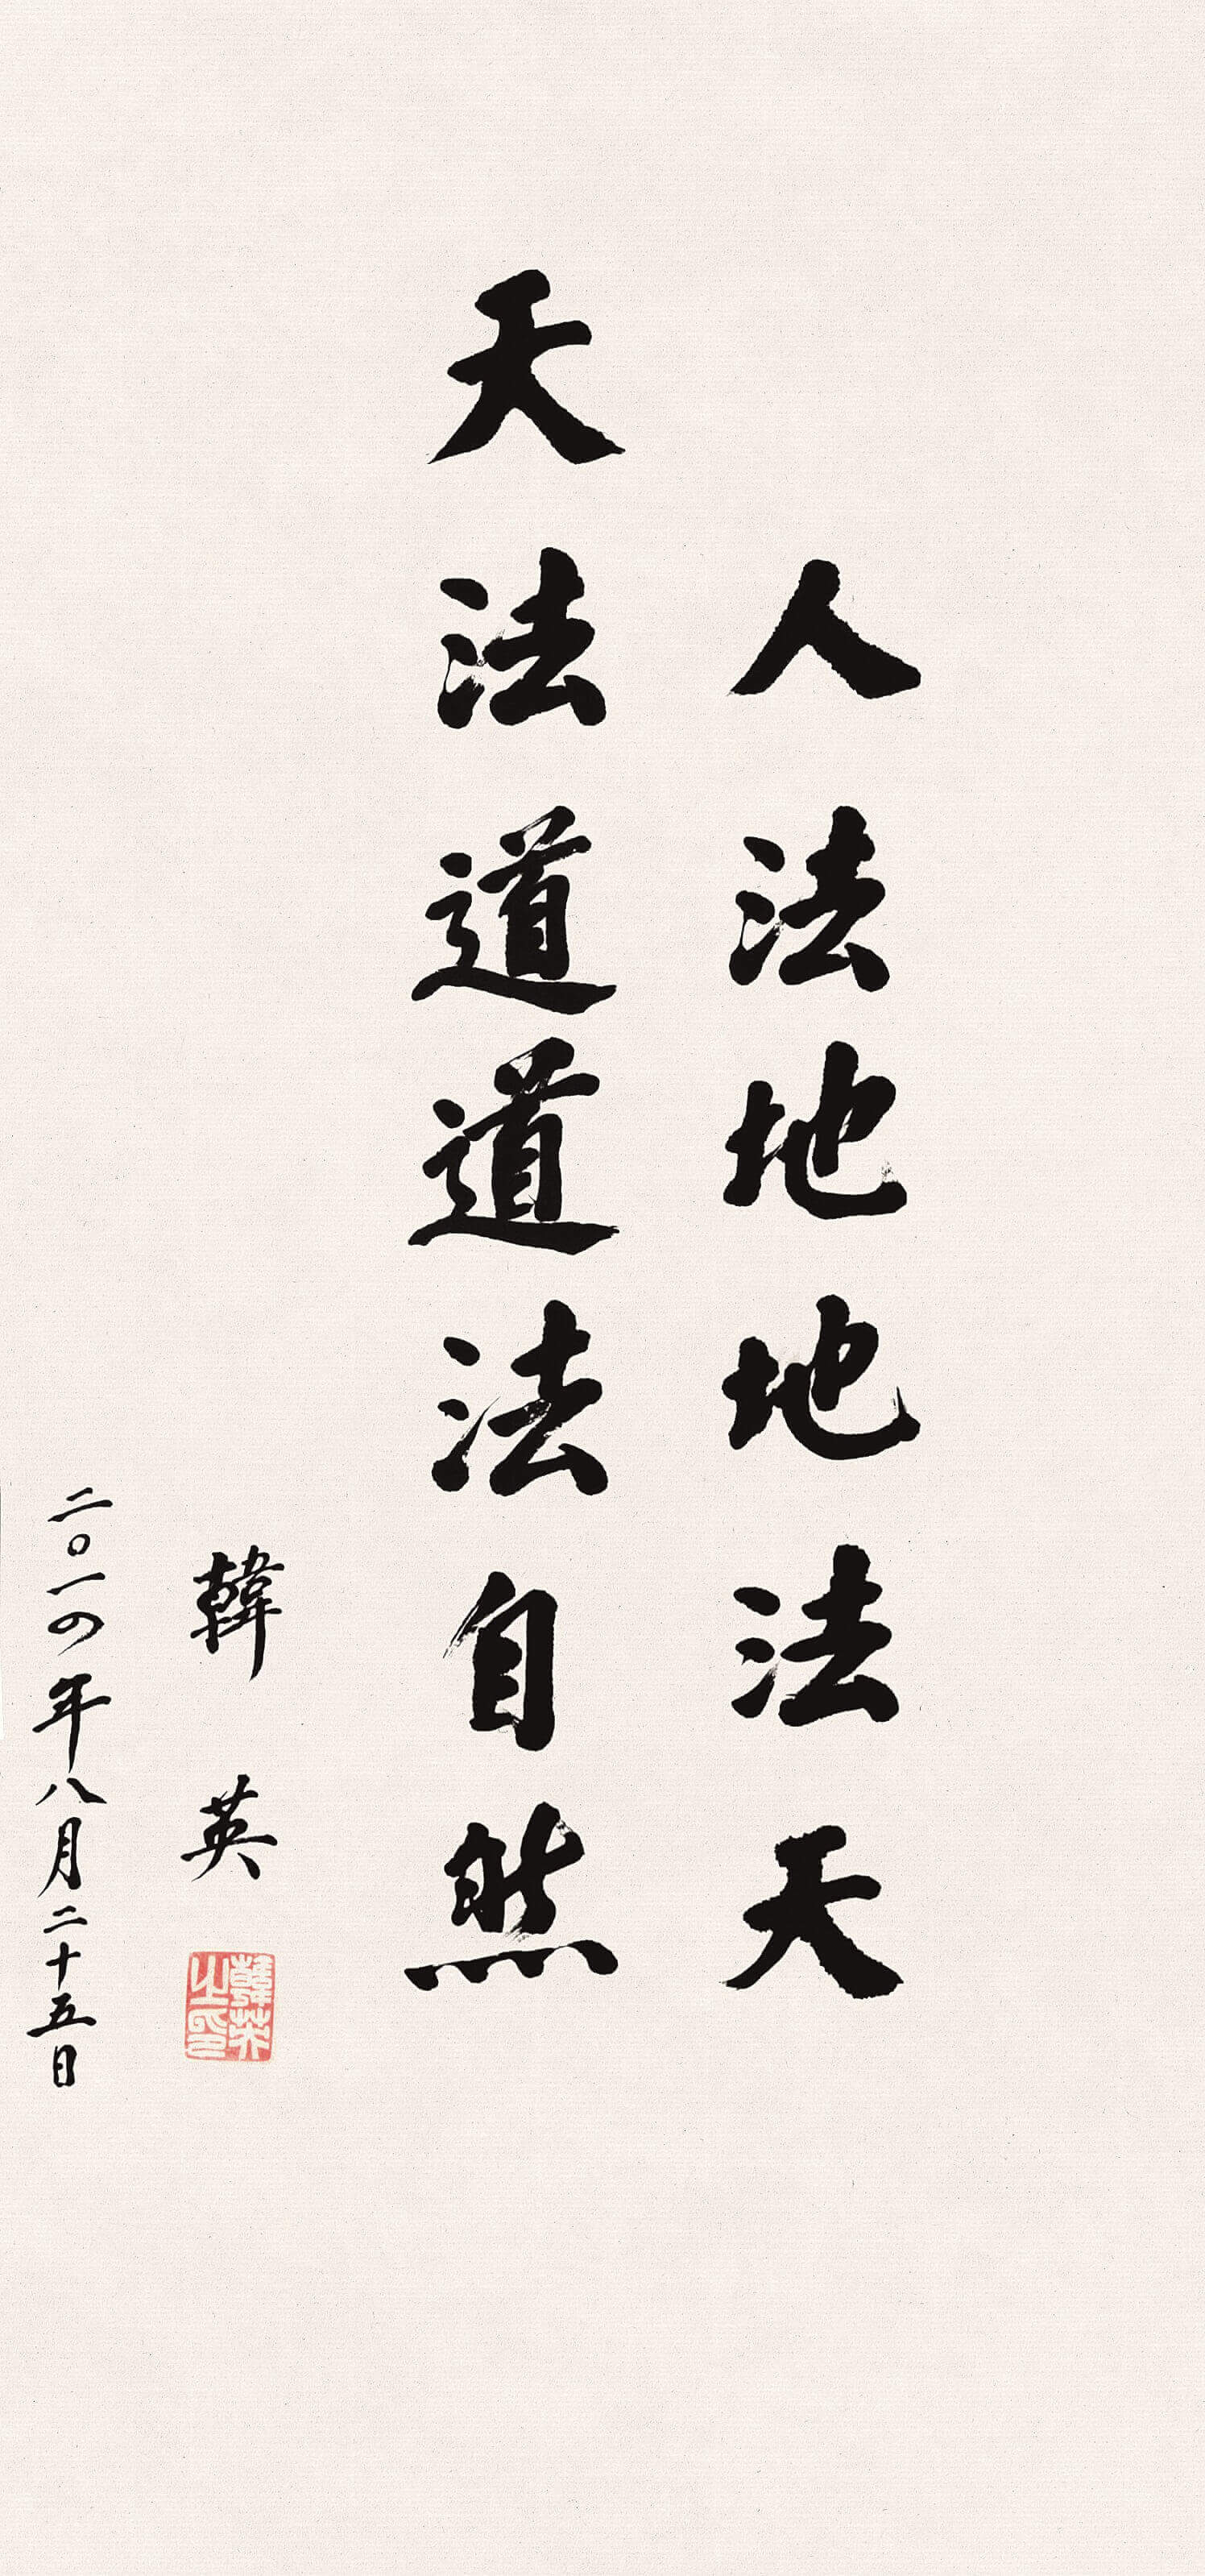 人法地地法天
天法道道法自然
韓英
韓英之印
二〇一四年八月二十五日